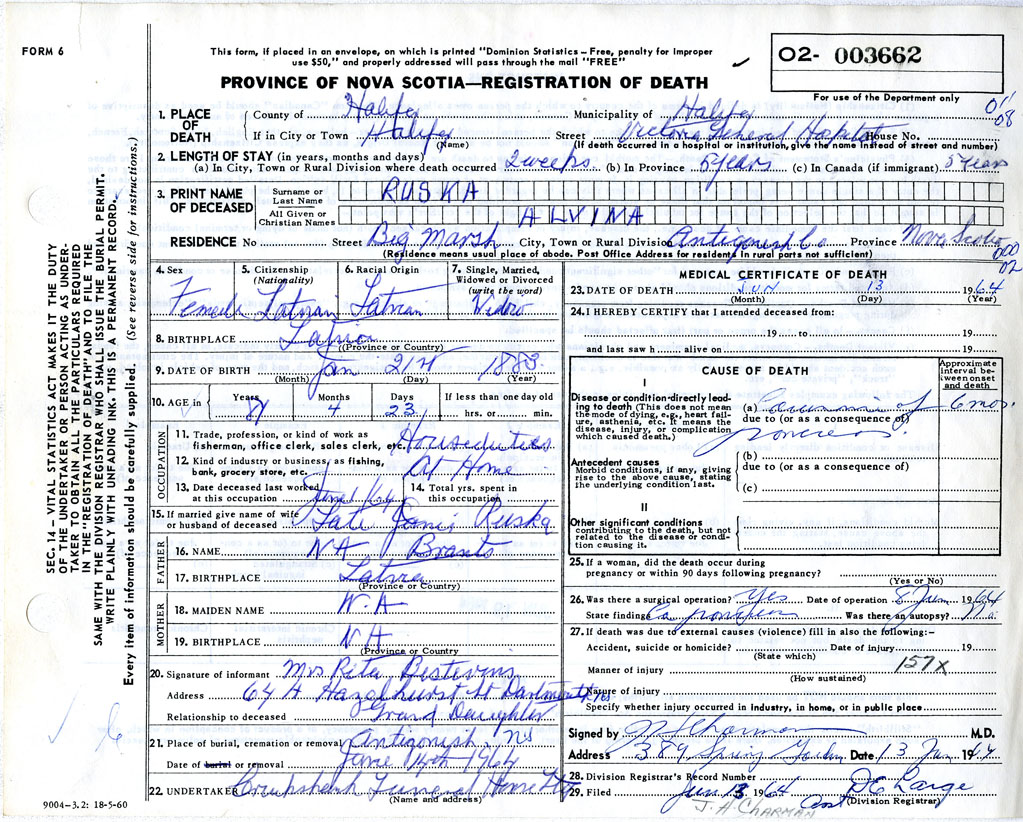 FORM 6
This form, if placed in an envelope, on which is printed "Dominion Statistics – Free, penalty for improper
use $50," and properly addressed will pass through the mail "FREE"
✓
O2- 003662
PROVINCE OF NOVA SCOTIA—REGISTRATION OF DEATH
For use of the Department only
011
08
1. PLACE OF DEATH
County of Halifax Municipality of Halifax
If in City or Town Halifax Street Victoria General House No.
(Name) (If death occurred in a hospital or institution, give the name instead of street and number)
2. LENGTH OF STAY (in years, months and days)
(a) In City, Town or Rural Division where death occurred 2 weeks (b) In Province 5 years (c) In Canada (if immigrant) 5 years
3. PRINT NAME OF DECEASED
Surname or Last Name RUSKA
All Given or Christian Names ALVINA
RESIDENCE No Street Big Marsh City, Town or Rural Division Antigonish Co Province Nova Scotia
(Residence means usual place of abode. Post Office Address for residents in rural parts not sufficient)
000
02
4. Sex 5. Citizenship (Nationality) 6. Racial Origin 7. Single, Married, Widowed or Divorced (write the word)
Female Latvian Latvian Widow
8. BIRTHPLACE Latvia
(Province or Country)
9. DATE OF BIRTH Jan 21st 1883
(Month) (Day) (Year)
10. AGE in Years Months Days If less than one day old
81 4 23 hrs. or min.
OCCUPATION
11. Trade, profession, or kind of work as fisherman, office clerk, sales clerk, etc. Houseduties
12. Kind of industry or business, as fishing, bank, grocery store, etc. At Home
13. Date deceased last worked at this occupation June 1/64 14. Total yrs. spent in this occupation
15. If married give name of wife or husband of deceased Late Janis Ruska
FATHER
16. NAME NA Brants
17. BIRTHPLACE Latvia
(Province or Country)
MOTHER
18. MAIDEN NAME N.A
19. BIRTHPLACE NA
(Province or Country)
20. Signature of informant Mrs Rita
Address 64 A Hazelhurst St Dartmouth
Relationship to deceased Grand Daughter
21. Place of burial, cremation or removal Antigonish NS
Date of burial or removal June 14th 1964
22. UNDERTAKER Cruikshank Funeral Home Ltd
(Name and address)
MEDICAL CERTIFICATE OF DEATH
23. DATE OF DEATH JUN 13 1964
(Month) (Day) (Year)
24. I HEREBY CERTIFY that I attended deceased from:
19 to 19
and last saw h alive on 19
CAUSE OF DEATH
Approximate interval between onset and death
I
Disease or condition directly leading to death (This does not mean the mode of dying, e.g., heart failure, asthenia, etc. It means the disease, injury, or complication which caused death.)
(a) Carcinoma of 6 mos.
due to (or as a consequence of)
pancreas
Antecedent causes
Morbid conditions, if any, giving rise to the above cause, stating the underlying condition last.
(b)
due to (or as a consequence of)
(c)
II
Other significant conditions
contributing to the death, but not related to the disease or condition causing it.
25. If a woman, did the death occur during pregnancy or within 90 days following pregnancy?
(Yes or No)
26. Was there a surgical operation? Yes Date of operation 8 Jun 1964
State finding Ca pancreas Was there an autopsy? No
27. If death was due to external causes (violence) fill in also the following:–
Accident, suicide or homicide? Date of injury 19
(State which)
157X
Manner of injury
(How sustained)
Nature of injury
Specify whether injury occurred in industry, in home, or in public place
Signed by J H Charman M.D.
Address 389 Spring Garden Date 13 Jun 1964
28. Division Registrar's Record Number
29. Filed Jun 13 1964 DE Large
(Division Registrar)
J. H. CHARMAN
SEC. 14 – VITAL STATISTICS ACT MAKES IT THE DUTY
OF THE UNDERTAKER OR PERSON ACTING AS UNDER-
TAKER TO OBTAIN ALL THE PARTICULARS REQUIRED
IN THE "REGISTRATION OF DEATH" AND TO FILE THE
SAME WITH THE DIVISION REGISTRAR WHO SHALL ISSUE THE BURIAL PERMIT.
WRITE PLAINLY WITH UNFADING INK. THIS IS A PERMANENT RECORD.
Every item of information should be carefully supplied. (See reverse side for instructions.)
9004–3.2: 18-5-60